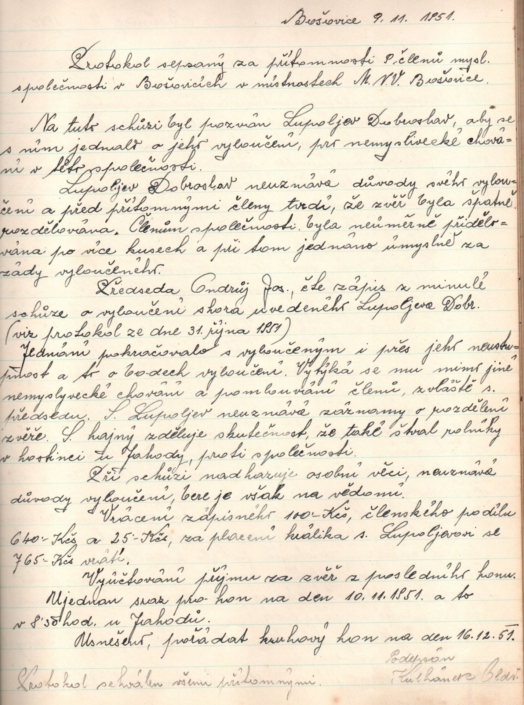 Bošovice 9. 11. 1951.
Protokol sepsaný za přítomnosti 8 členů mysl.
společnosti v Bošovicích v místnostech M.N.V. Bošovice.
Na tuto schůzi byl pozván Lupoljev Dobroslav, aby se
s ním jednalo o jeho vyloučení, pro nemyslivecké chová-
ní v této společnosti.
Lupoljev Dobroslav neuznává důvody svého vylou-
čení a před přítomnými členy tvrdí, že zvěř byla špatně
rozdělována. Členům společnosti byla neúměrně přidělo-
vána po více kusech a při tom jednáno úmyslně za
zády vyloučeného.
Předseda Ondrůj Jos., čte zápis z minulé
schůze o vyloučení skora uvedeného Lupoljeva Dobr.
(viz protokol ze dne 31. října 1951)
Jednání pokračovalo s vyloučeným i přes jeho neustu-
pnost a to o bodech vyloučení. Vytýká se mu mimo jiné
nemyslyvecké chování a pomlouvání členů, zvláště s.
předsedu. S. Lupoljev neuznává záznamy o rozdělení
zvěře. S. hajný zděluje skutečnost, že také štval rolníky
v hostinci u Jahody, proti společnosti.
Při schůzi nadhazuje osobní věci, neuznává
důvody vyloučení, bere je však na vědomí.
Vrácení zápisného 100-Kčs, členského podílu
640-Kčs a 25-Kčs, za placení králíka s. Lupoljevovi se
765-Kčs vrátí.
Vyúčtování příjmu za zvěř z posledního honu.
Ujednán sraz pro hon na den 10.11.1951. a to
v 8'30 hod. u Jahodů.
Usnešení, pořádat kruhový hon na den 16.12.51.
Protokol schválen všemi přítomnými.
Podepsán